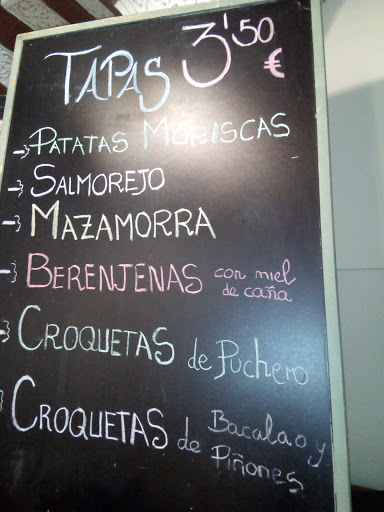 TAPAS 3'50 €
PATATAS MORISCAS
SALMOREJO
MAZAMORRA
BERENJENAS con miel
de caña
CROQUETAS de Puchero
CROQUETAS de Bacalao y
Piñones